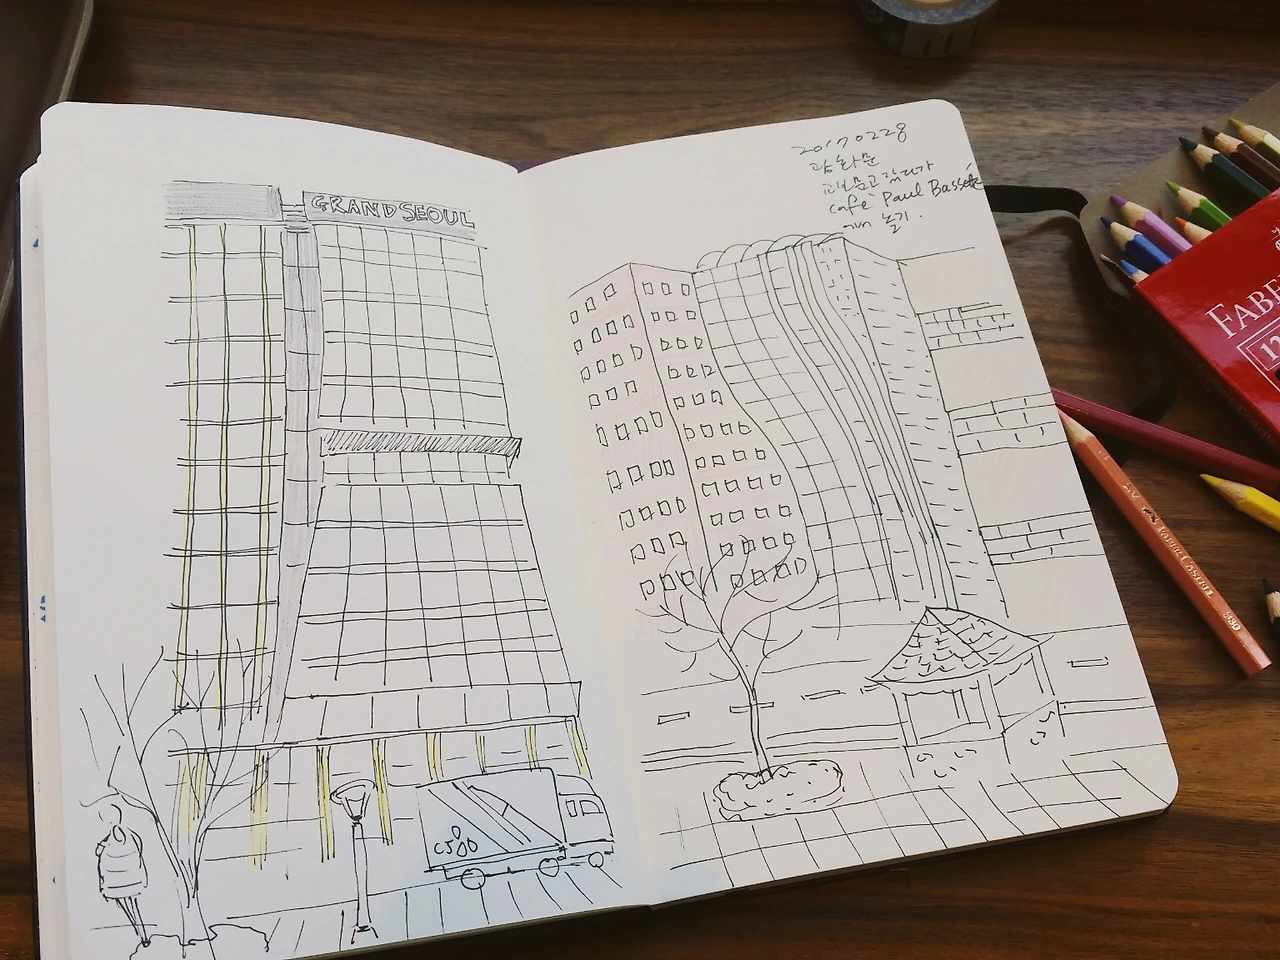 GRAND SEOUL
20170228
광화문
교보문고 갔다가
café Paul Bassett
에서 놀기.
FABER
12
FABER CASTELL